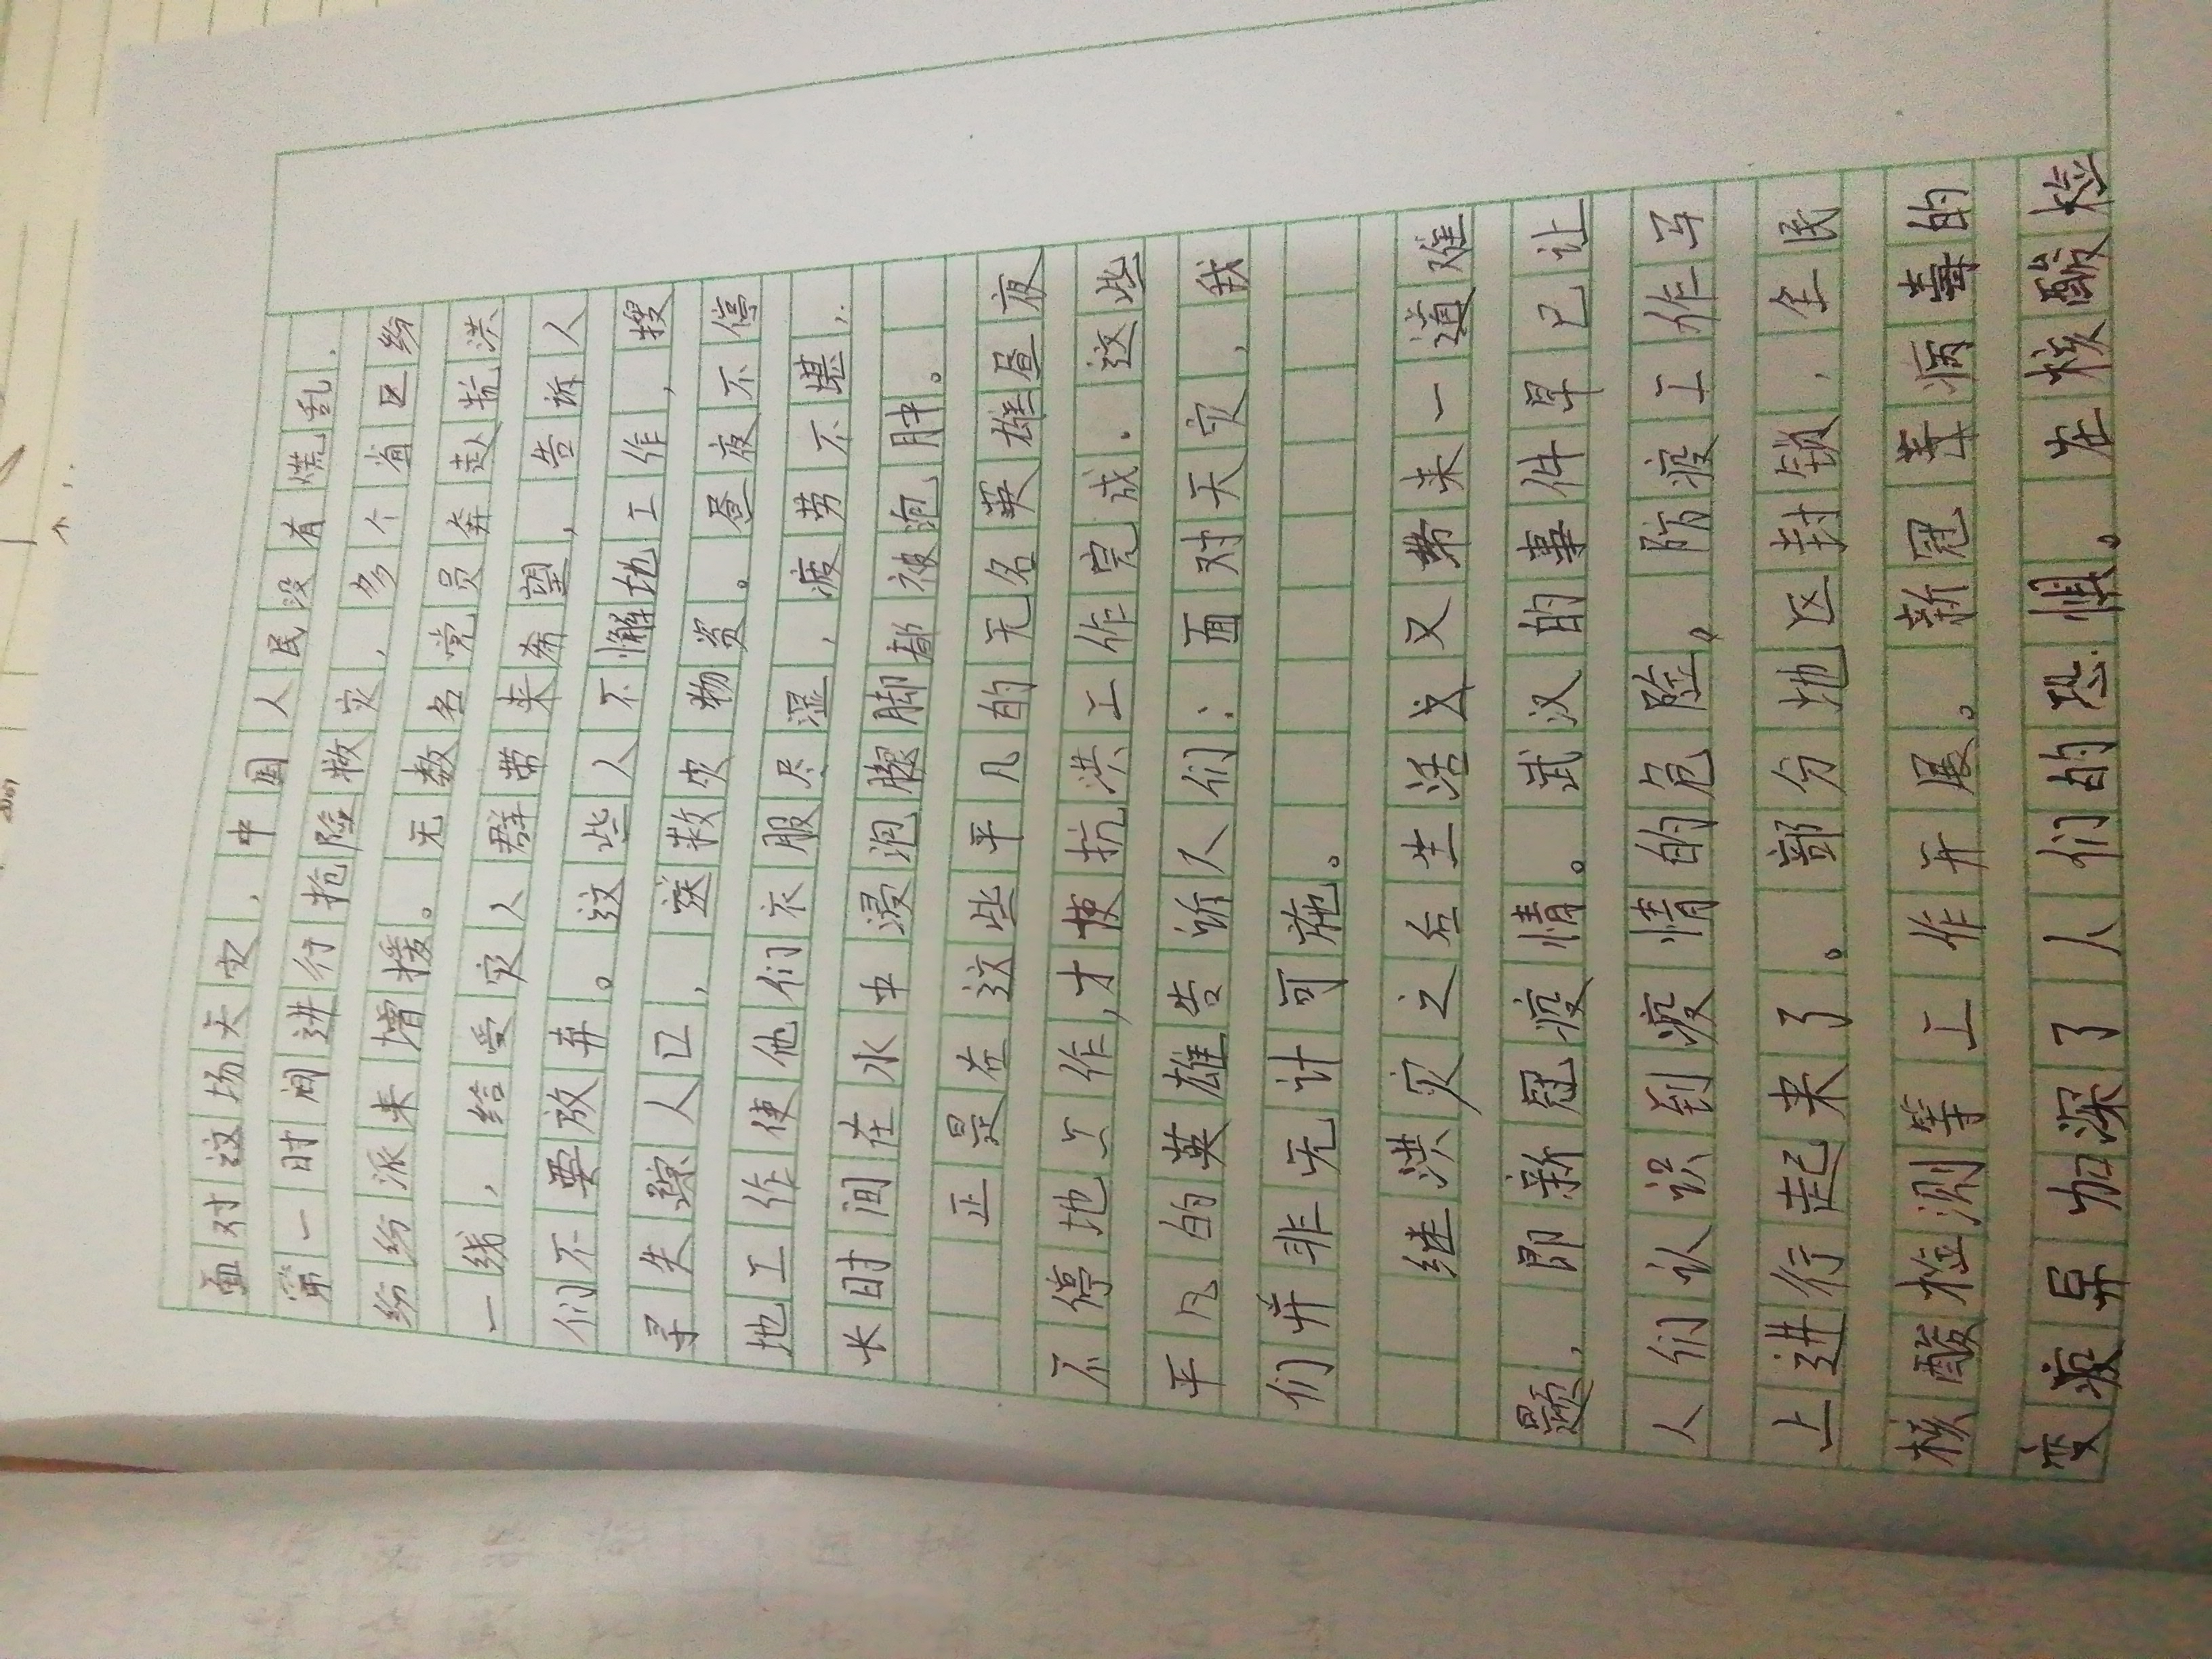 面对这场天灾，中国人民没有慌乱，
第一时间进行抢险救灾，多个省区纷
纷纷派来增援。无数名党员奔赴抗洪
一线，给受灾人群带来希望，告诉人
们不要放弃。这些人不懈地工作，搜
寻失踪人口，送救灾物资。昼夜不停
地工作使他们衣服尽湿，疲劳不堪，
长时间在水中浸泡腿脚都被泡肿。
正是在这些平凡的无名英雄昼夜
不停地工作，才使抗洪工作完成．这些
平凡的英雄告诉人们：面对天灾，我
们并非无计可施。
继洪灾之后生活又带来一道难
题，即新冠疫情。武汉的事件早已让
人们认识到疫情的危险，防疫工作马
上进行起来了。部分地区封锁，全民
核酸检测等工作开展。新冠毒病毒的
变疫异加深了人们的恐惧。在核酸检